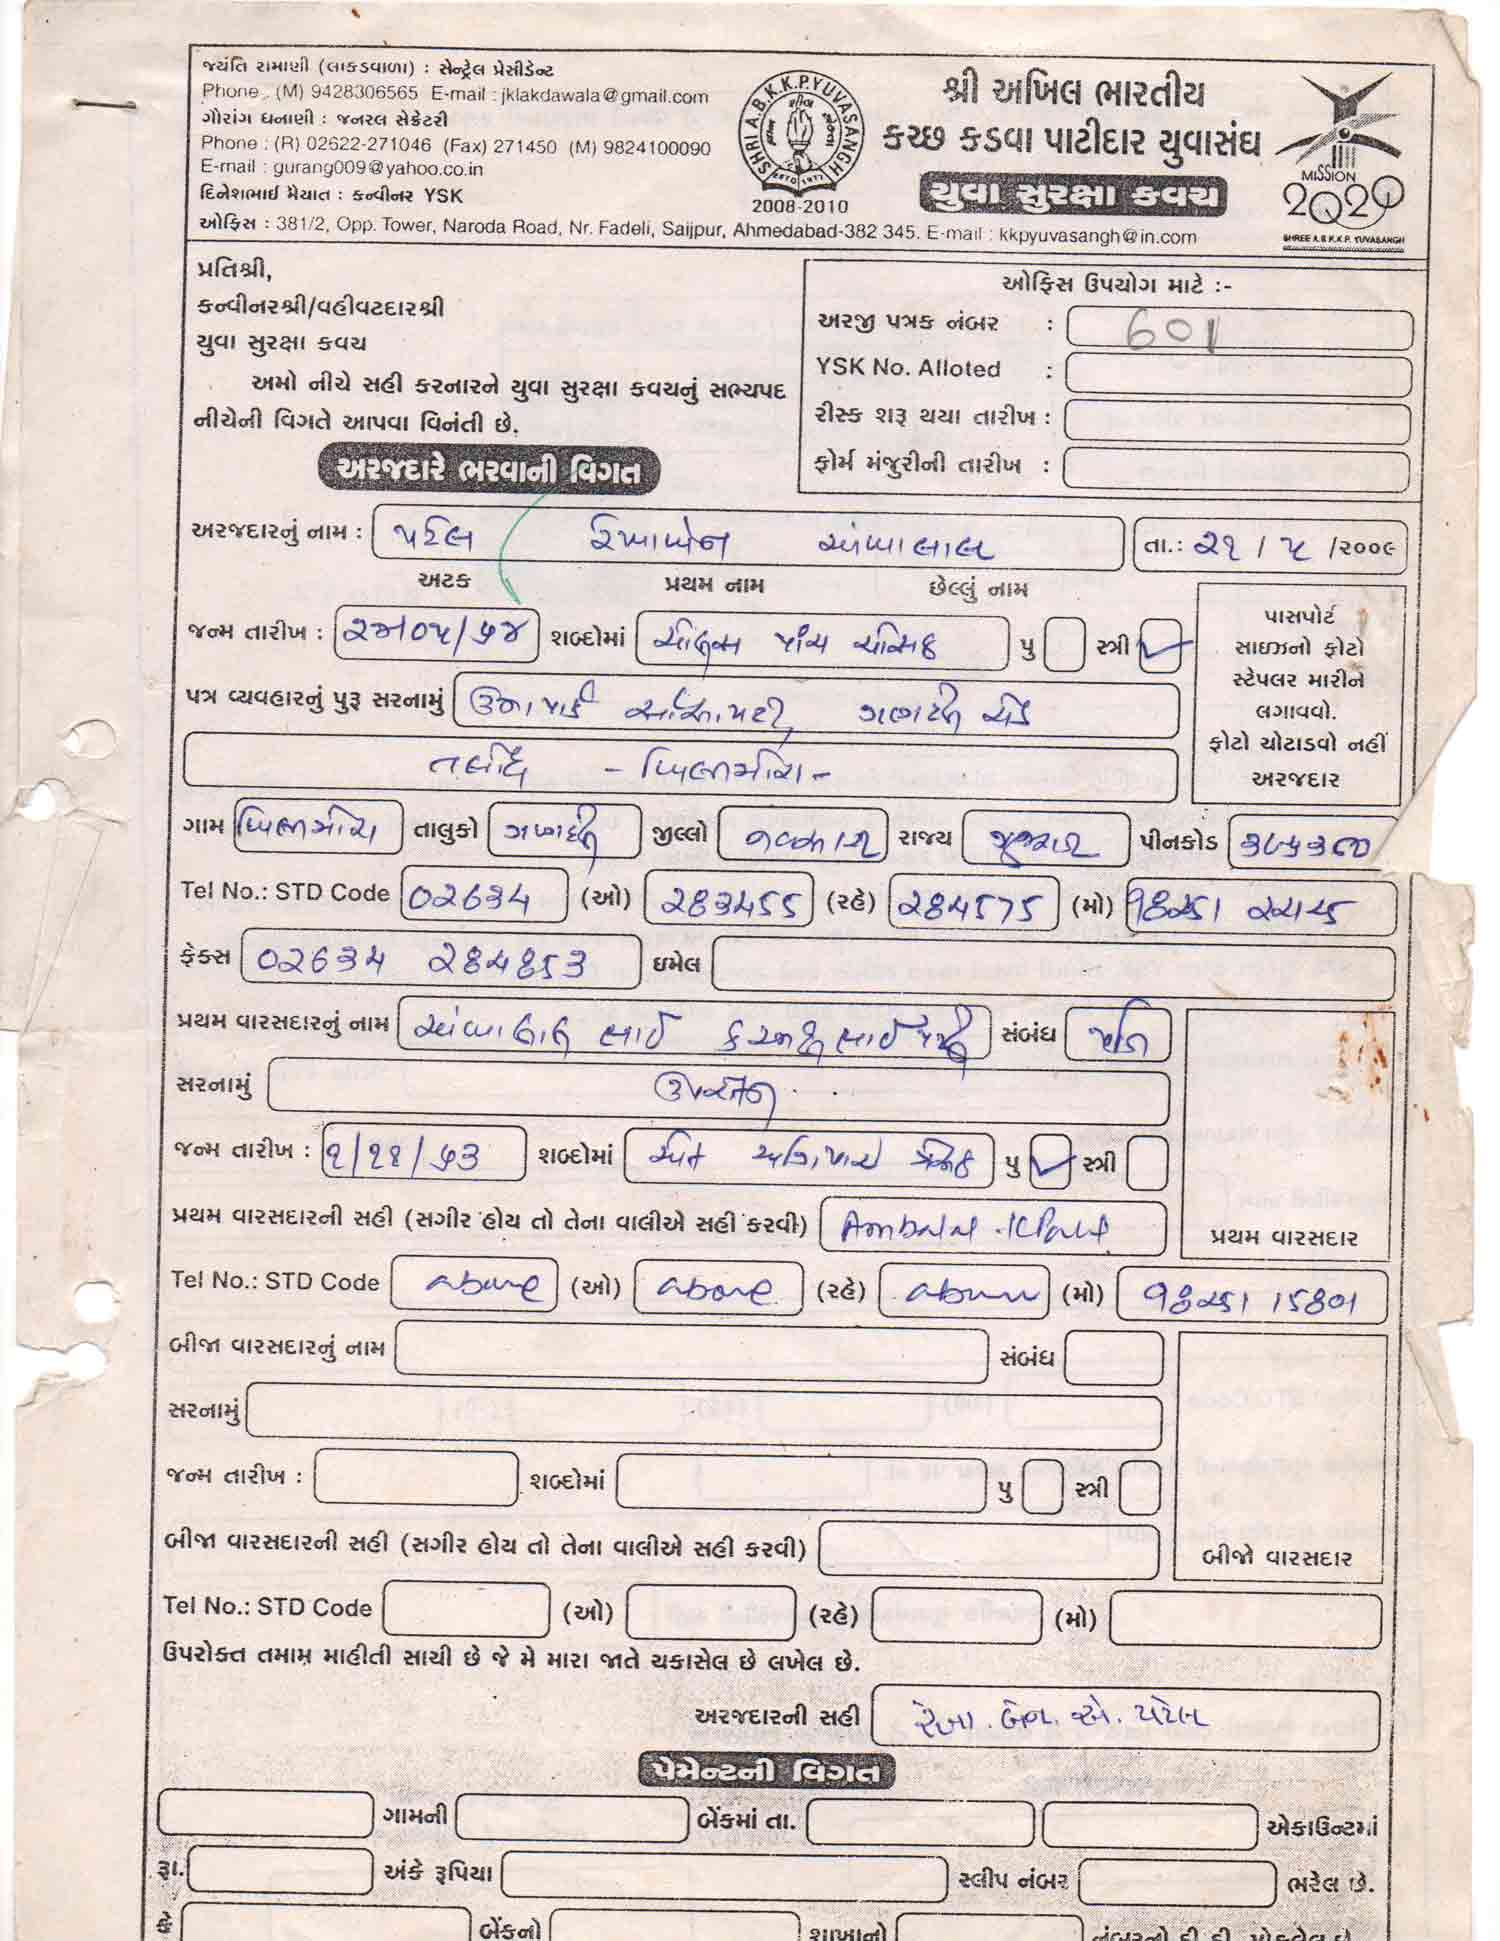 જયંતિ રામાણી (લાકડવાળા) : સેન્ટ્રલ પ્રેસીડેન્ટ
Phone : (M) 9428306565 E-mail : jklakdawala@gmail.com
ગૌરાંગ ધનાણી : જનરલ સેક્રેટરી
Phone : (R) 02622-271046 (Fax) 271450 (M) 9824100090
E-mail : gurang009@yahoo.co.in
દિનેશભાઈ મેયાત : કન્વીનર YSK
ઓફિસ : 381/2, Opp. Tower, Naroda Road, Nr. Fadeli, Saijpur, Ahmedabad-382 345. E-mail : kkpyuvasangh@in.com
SHRI A.B.K.K.P. YUVASANGH
ESTD 1977
2008-2010
શ્રી અખિલ ભારતીય
કચ્છ કડવા પાટીદાર યુવાસંઘ
યુવા સુરક્ષા કવચ
MISSION
2020
SHREE A.B.K.K.P. YUVASANGH
પ્રતિશ્રી,
કન્વીનરશ્રી/વહીવટદારશ્રી
યુવા સુરક્ષા કવચ
અમો નીચે સહી કરનારને યુવા સુરક્ષા કવચનું સભ્યપદ
નીચેની વિગતે આપવા વિનંતી છે.
ઓફિસ ઉપયોગ માટે :-
અરજી પત્રક નંબર : 601
YSK No. Alloted :
રીસ્ક શરૂ થયા તારીખ :
ફોર્મ મંજુરીની તારીખ :
અરજદારે ભરવાની વિગત
અરજદારનું નામ : પટેલ રેખાબેન અંબાલાલ તા.: ૨૧ / ૫ /૨૦૦૯
અટક પ્રથમ નામ છેલ્લું નામ
જન્મ તારીખ : શબ્દોમાં પુ સ્ત્રી
પાસપોર્ટ
સાઇઝનો ફોટો
સ્ટેપલર મારીને
લગાવવો.
ફોટો ચોટાડવો નહીં
અરજદાર
પત્ર વ્યવહારનું પુરૂ સરનામું સોસાયટી
બિલીમોરા
ગામ બિલીમોરા તાલુકો ગણદેવી જીલ્લો નવસારી રાજય ગુજરાત પીનકોડ
Tel No.: STD Code 02634 (ઓ) 283455 (રહે) 284575 (મો)
ફેક્સ 02634 284853 ઇમેલ
પ્રથમ વારસદારનું નામ અંબાલાલ ભાઈ સંબંધ પતિ
સરનામું ઉપરોક્ત
જન્મ તારીખ : ૧/૧૧/૫૩ શબ્દોમાં પુ સ્ત્રી
પ્રથમ વારસદારની સહી (સગીર હોય તો તેના વાલીએ સહી કરવી) Ambalal K Patel
પ્રથમ વારસદાર
Tel No.: STD Code above (ઓ) above (રહે) above (મો) ૧8૨૫1 15801
બીજા વારસદારનું નામ સંબંધ
સરનામું
જન્મ તારીખ : શબ્દોમાં પુ સ્ત્રી
બીજા વારસદારની સહી (સગીર હોય તો તેના વાલીએ સહી કરવી)
બીજો વારસદાર
Tel No.: STD Code (ઓ) (રહે) (મો)
ઉપરોક્ત તમામ માહીતી સાચી છે જે મે મારા જાતે ચકાસેલ છે લખેલ છે.
અરજદારની સહી રેખા. બેન. એ. પટેલ
પેમેન્ટની વિગત
ગામની બેંકમાં તા. એકાઉન્ટમાં
રૂા. અંકે રૂપિયા સ્લીપ નંબર ભરેલ છે.
કે બેંકનો શાખાનો નંબરનો ડી.ડી. મોકલેલ છે.